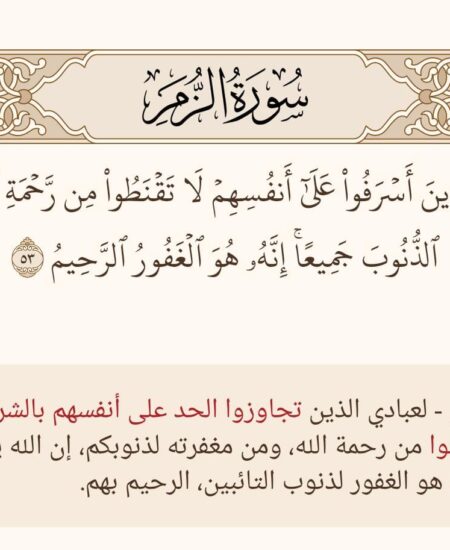 سُورَةُ الزُّمَرِ
أَسۡرَفُواْ عَلَىٰٓ أَنفُسِهِمۡ لَا تَقۡنَطُواْ مِن رَّحۡمَةِ
ٱلذُّنُوبَ جَمِيعًاۚ إِنَّهُۥ هُوَ ٱلۡغَفُورُ ٱلرَّحِيمُ ٥٣
- لعبادي الذين تجاوزوا الحد على أنفسهم
من رحمة الله، ومن مغفرته لذنوبكم، إن الله
هو الغفور لذنوب التائبين، الرحيم بهم.